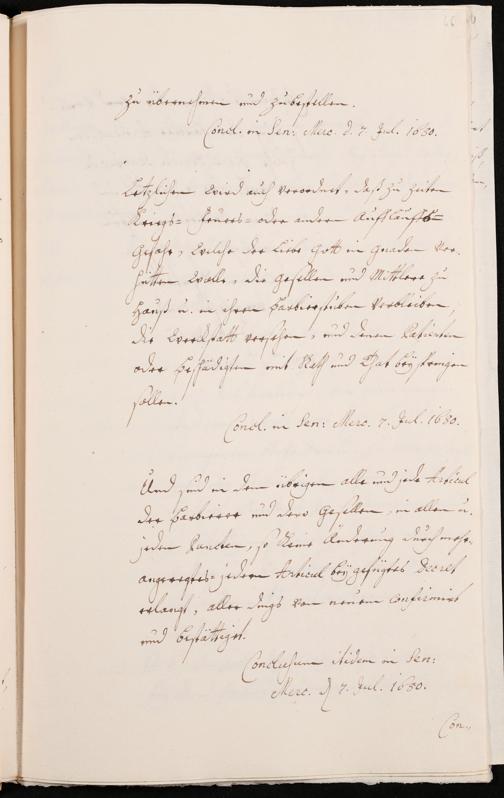 zu übernehmen und zubestellen.
Concl. in Sen: Merc. d. 7. Jul. 1680.
Letzlichen wird auch verordnet, daß zu Zeiten
Kriegs- Feuers- oder andern Aufflauffs-
gefahr, welche der liebe Gott in gnaden ver-
hütten wolle, die Gesellen und Mittlere zu
Hauß u. in ihren barbierstuben verbleiben,
die Werckstatt versehen, und denen Patienten
oder beschädigten mit Rath und That beyspringen
sollen.
Concl. in Sen: Merc. 7. Jul. 1680.
Und sind in dem übrigen alle und jede Articul
der barbierer und dero Gesellen, in allen u.
jeden Puncten, so keine änderung durch mehr-
angeregtes jedem Articul beygefügtes Decret
erlangt, aller dings von neuem confirmirt
und bestättiget.
Conclusum itidem in Sen:
Merc. d. 7. Jul. 1680.
Con-